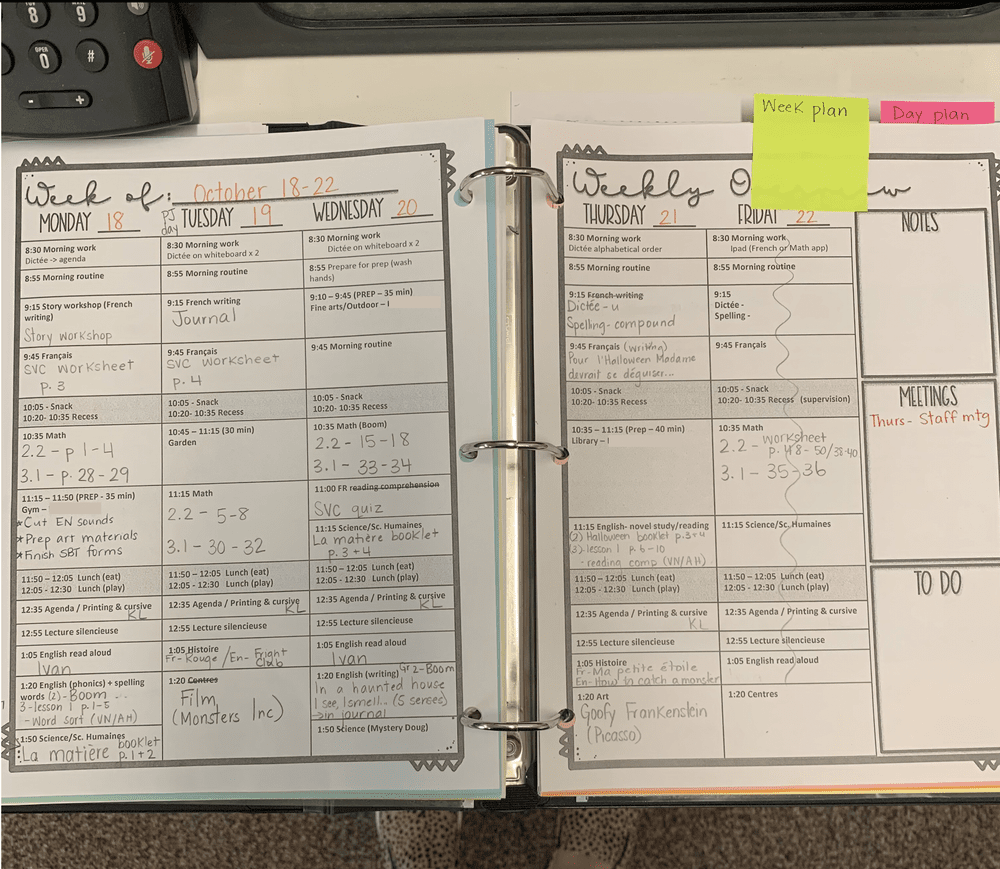 8
9
OPER
0
#
-
+
Week plan
Day plan
Week of: October 18-22
MONDAY 18
8:30 Morning work
Dictée -> agenda
8:55 Morning routine
9:15 Story workshop (French
writing)
Story workshop
9:45 Français
SVC worksheet
p. 3
10:05 - Snack
10:20- 10:35 Recess
10:35 Math
2.2 - p 1-4
3.1 - p. 28-29
11:15 – 11:50 (PREP - 35 min)
Gym –
*Cut EN sounds
*Prep art materials
*Finish SBT forms
11:50 – 12:05 Lunch (eat)
12:05 - 12:30 Lunch (play)
12:35 Agenda / Printing & cursive
KL
12:55 Lecture silencieuse
1:05 English read aloud
Ivan
1:20 English (phonics) + spelling
words (2) - Boom
3-lesson 1 p.1-5
- Word sort (VN/AH)
1:50 Science/Sc. Humaines
La matière booklet
p. 1+2
PJ
day
TUESDAY 19
8:30 Morning work
Dictée on whiteboard x 2
8:55 Morning routine
9:15 French writing
Journal
9:45 Français
SVC worksheet
p. 4
10:05 - Snack
10:20- 10:35 Recess
10:45 – 11:15 (30 min)
Garden
11:15 Math
2.2 - 5-8
3.1 - 30-32
11:50 – 12:05 Lunch (eat)
12:05 - 12:30 Lunch (play)
12:35 Agenda / Printing & cursive
KL
12:55 Lecture silencieuse
1:05 Histoire
Fr- Rouge / En- Fright
Club
1:20 Centres
Film
(Monsters Inc)
WEDNESDAY 20
8:30 Morning work
Dictée on whiteboard x 2
8:55 Prepare for prep (wash
hands)
9:10 – 9:45 (PREP – 35 min)
Fine arts/Outdoor – I
9:45 Morning routine
10:05 - Snack
10:20- 10:35 Recess
10:35 Math (Boom)
2.2 - 15-18
3.1 - 33-34
11:00 FR reading comprehension
SVC quiz
11:15 Science/Sc. Humaines
La matière booklet
p. 3+4
11:50 – 12:05 Lunch (eat)
12:05 - 12:30 Lunch (play)
12:35 Agenda / Printing & cursive
KL
12:55 Lecture silencieuse
1:05 English read aloud
Ivan
1:20 English (writing) Gr 2-Boom
In a haunted house
I see, I smell.. (5 senses)
-> in journal
1:50 Science (Mystery Doug)
Weekly O w
THURSDAY 21
8:30 Morning work
Dictée alphabetical order
8:55 Morning routine
9:15 French writing
Dictée - u
Spelling- compound
9:45 Français (writing)
Pour l'Halloween Madame
devrait se déguiser...
10:05 - Snack
10:20- 10:35 Recess
10:35 – 11:15 (Prep – 40 min)
Library – I
11:15 English- novel study/reading
(2) Halloween booklet p.3+4
(3)- lesson 1 p. 6-10
- reading comp (VN/AH)
11:50 – 12:05 Lunch (eat)
12:05 - 12:30 Lunch (play)
12:35 Agenda / Printing & cursive
KL
12:55 Lecture silencieuse
1:05 Histoire
Fr-Ma petite étoile
En-How to catch a monster
1:20 Art
Goofy Frankenstein
(Picasso)
FRIDAY 22
8:30 Morning work
Ipad (French or Math app)
8:55 Morning routine
9:15
Dictée -
Spelling -
9:45 Français
10:05 - Snack
10:20- 10:35 Recess (supervision)
10:35 Math
2.2 - worksheet
p. 48-50/38-40
3.1 - 35-36
11:15 Science/Sc. Humaines
11:50 – 12:05 Lunch (eat)
12:05 - 12:30 Lunch (play)
12:35 Agenda / Printing & cursive
12:55 Lecture silencieuse
1:05 English read aloud
1:20 Centres
NOTES
MEETINGS
Thurs- Staff mtg
TO DO